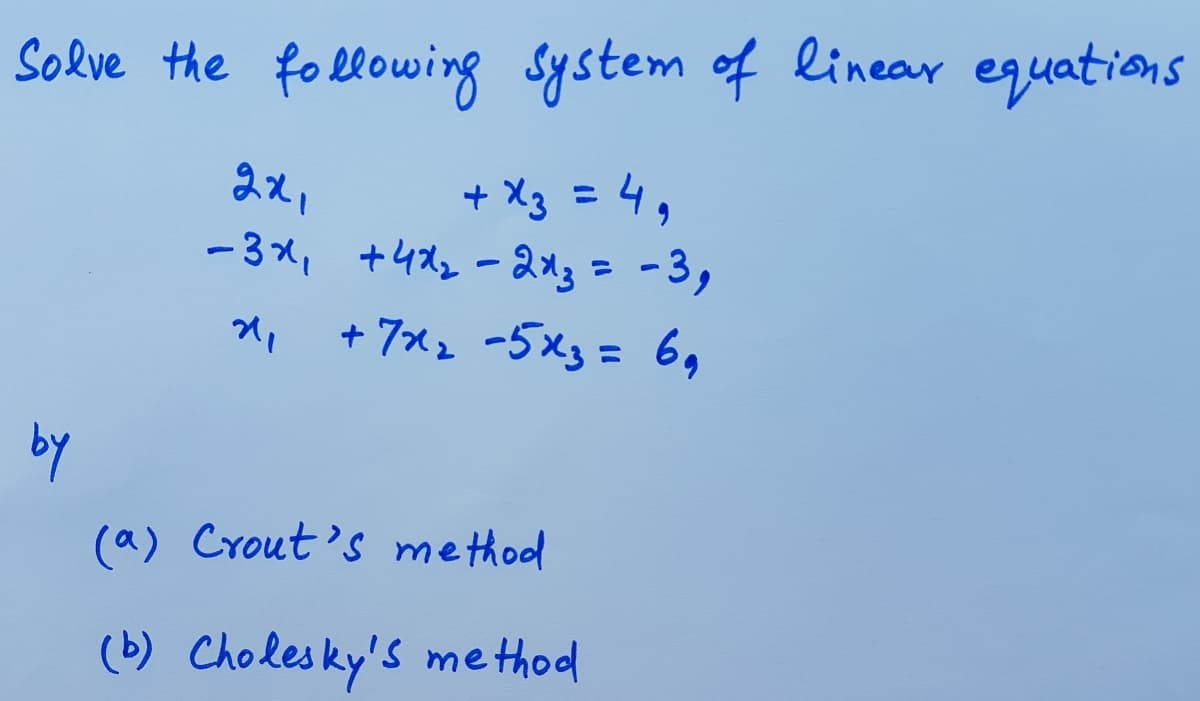 Solve the following system of linear equations
2x₁ + x₃ = 4,
-3x₁ +4x₂ - 2x₃ = -3,
x₁ + 7x₂ -5x₃ = 6,
by
(a) Crout's method
(b) Cholesky's method